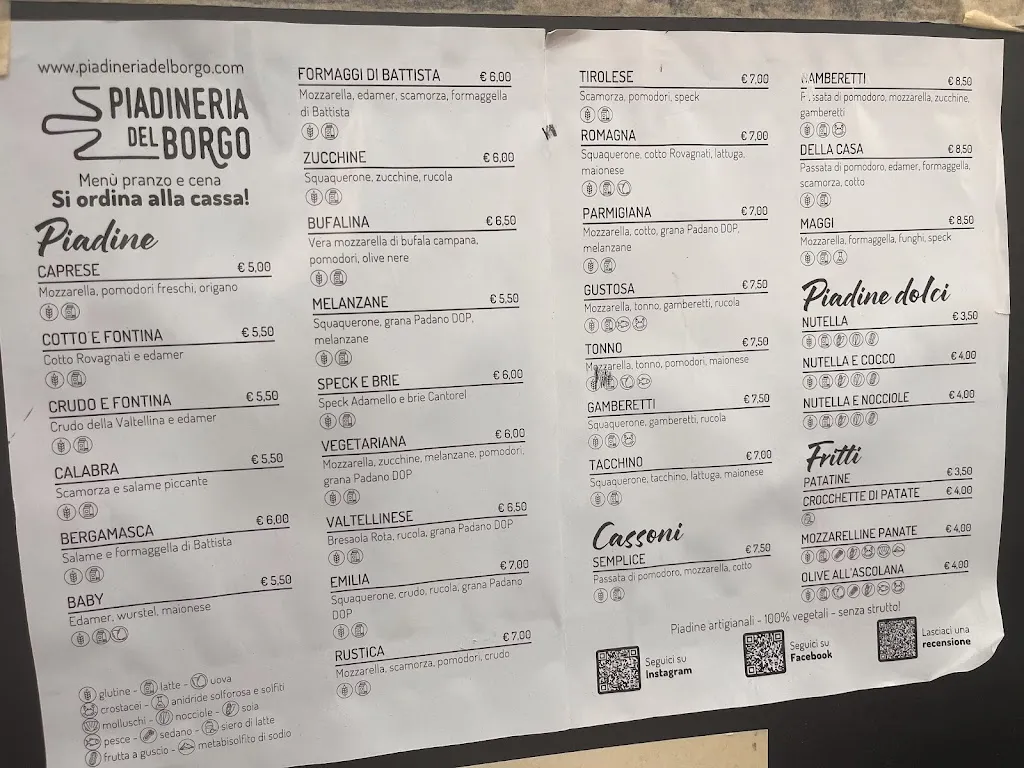 www.piadineriadelborgo.com
PIADINERIA
DEL BORGO
Menù pranzo e cena
Si ordina alla cassa!
Piadine
CAPRESE € 5,00
Mozzarella, pomodori freschi, origano
COTTO E FONTINA € 5,50
Cotto Rovagnati e edamer
CRUDO E FONTINA € 5,50
Crudo della Valtellina e edamer
CALABRA € 5,50
Scamorza e salame piccante
BERGAMASCA € 6,00
Salame e formaggella di Battista
BABY € 5,50
Edamer, wurstel, maionese
glutine - latte - uova
crostacei - anidride solforosa e solfiti
molluschi - nocciole - soia
pesce - sedano - siero di latte
frutta a guscio - metabisolfito di sodio
FORMAGGI DI BATTISTA € 6,00
Mozzarella, edamer, scamorza, formaggella
di Battista
ZUCCHINE € 6,00
Squaquerone, zucchine, rucola
BUFALINA € 6,50
Vera mozzarella di bufala campana,
pomodori, olive nere
MELANZANE € 5,50
Squaquerone, grana Padano DOP,
melanzane
SPECK E BRIE € 6,00
Speck Adamello e brie Cantorel
VEGETARIANA € 6,00
Mozzarella, zucchine, melanzane, pomodori,
grana Padano DOP
VALTELLINESE € 6,50
Bresaola Rota, rucola, grana Padano DOP
EMILIA € 7,00
Squaquerone, crudo, rucola, grana Padano
DOP
RUSTICA € 7,00
Mozzarella, scamorza, pomodori, crudo
TIROLESE € 7,00
Scamorza, pomodori, speck
ROMAGNA € 7,00
Squaquerone, cotto Rovagnati, lattuga,
maionese
PARMIGIANA € 7,00
Mozzarella, cotto, grana Padano DOP,
melanzane
GUSTOSA € 7,50
Mozzarella, tonno, gamberetti, rucola
TONNO € 7,50
Mozzarella, tonno, pomodori, maionese
GAMBERETTI € 7,50
Squaquerone, gamberetti, rucola
TACCHINO € 7,00
Squaquerone, tacchino, lattuga, maionese
Cassoni
SEMPLICE € 7,50
Passata di pomodoro, mozzarella, cotto
GAMBERETTI € 8,50
Passata di pomodoro, mozzarella, zucchine,
gamberetti
DELLA CASA € 8,50
Passata di pomodoro, edamer, formaggella,
scamorza, cotto
MAGGI € 8,50
Mozzarella, formaggella, funghi, speck
Piadine dolci
NUTELLA € 3,50
NUTELLA E COCCO € 4,00
NUTELLA E NOCCIOLE € 4,00
Fritti
PATATINE € 3,50
CROCCHETTE DI PATATE € 4,00
MOZZARELLINE PANATE € 4,00
OLIVE ALL'ASCOLANA € 4,00
Piadine artigianali - 100% vegetali - senza strutto!
Seguici su
Instagram
Seguici su
Facebook
Lasciaci una
recensione